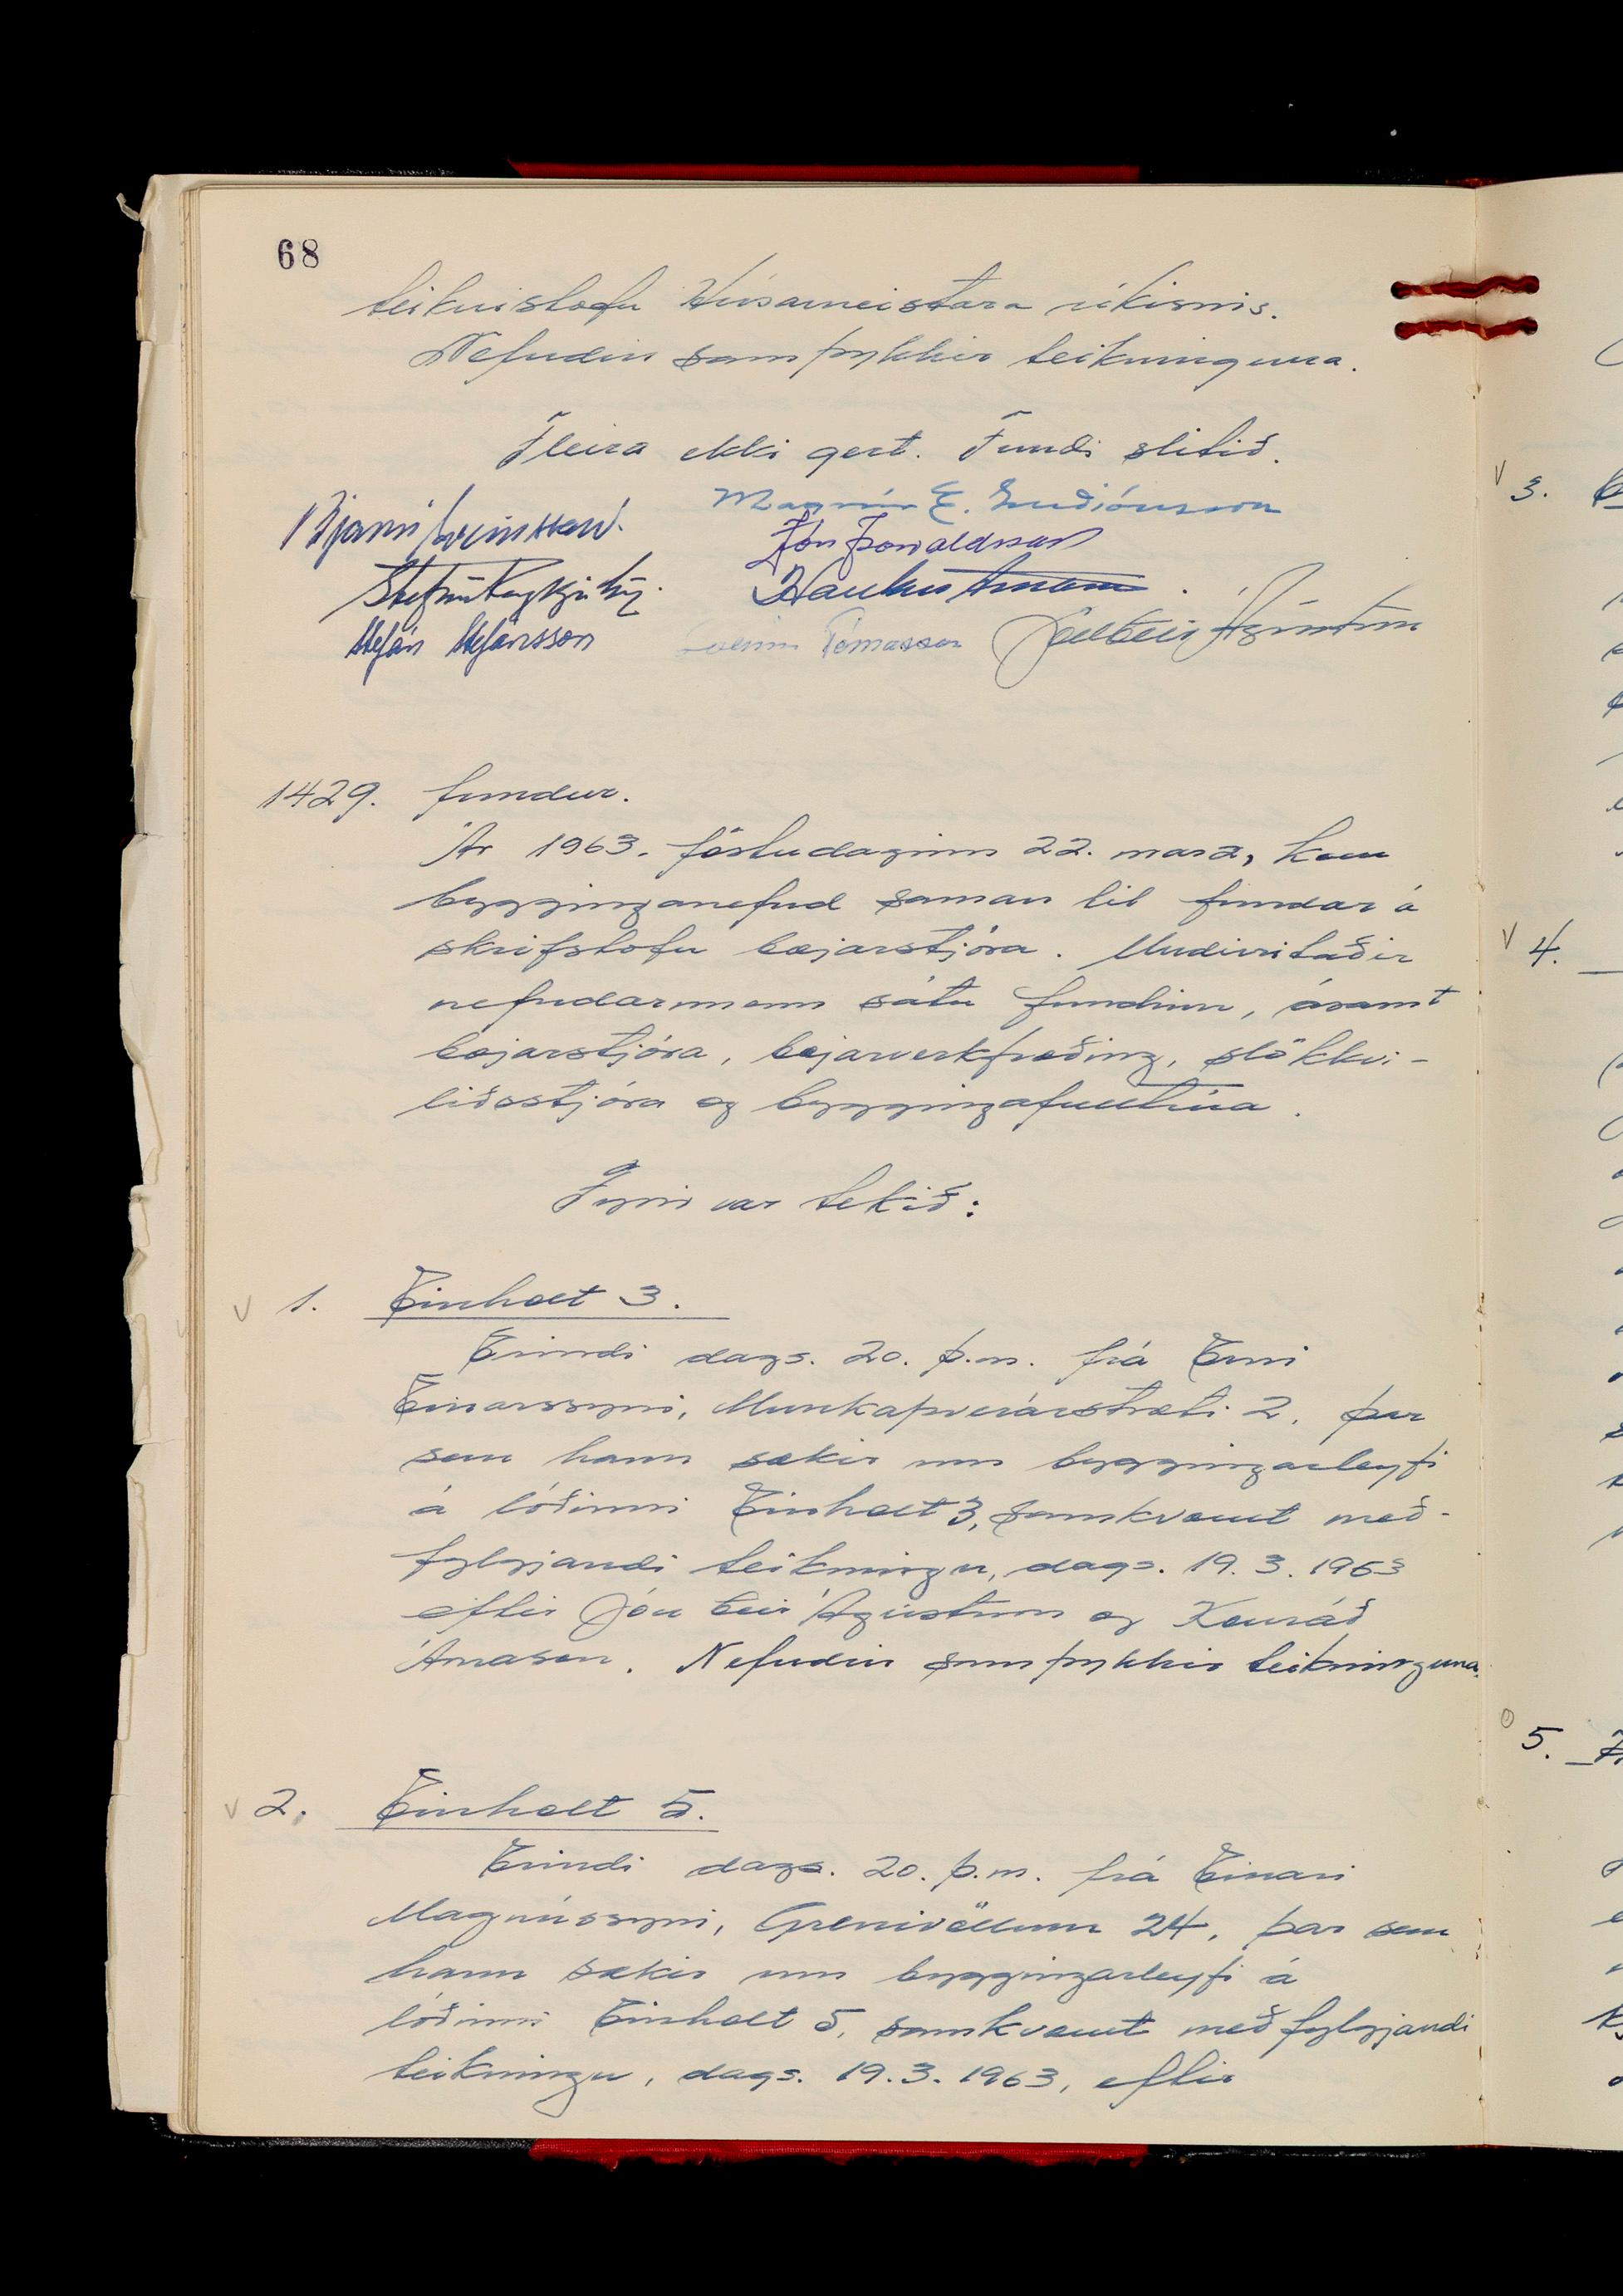 68
teiknistofu Húsameistara ríkisins.
Nefndin samþykkir teikninguna.
Fleira ekki gert. Fundi slitið.
Magnús E. Guðjónsson
Bjarni Sveinsson.
Jón Þorvaldsson
Stefán Reykjalín.
Haukur Árnason.
Stefán Stefánsson
Sveinn Tómasson
Jón Geir Ágústsson
1429. fundur.
Ár 1963. föstudaginn 22. marz, kom
bygginganefnd saman til fundar á
skrifstofu bæjarstjóra. Undirritaðir
nefndarmenn sátu fundinn, ásamt
bæjarstjóra, bæjarverkfræðing, slökkvi-
liðsstjóra og byggingafulltrúa.
Fyrir var tekið:
v 1. Einholt 3.
Erindi dags. 20. þ.m. frá Erni
Einarssyni, Munkaþverárstræti 2, þar
sem hann sækir um byggingarleyfi
á lóðinni Einholt 3, samkvæmt með-
fylgjandi teikningu, dags. 19.3.1963
eftir Jón Geir Ágústsson og Konráð
Árnason. Nefndin samþykkir teikninguna.
v 2. Einholt 5.
Erindi dags. 20. þ.m. frá Einari
Magnússyni, Grenivöllum 24, þar sem
hann sækir um byggingarleyfi á
lóðinni Einholt 5, samkvæmt meðfylgjandi
teikningu, dags. 19.3.1963, eftir
v 3.
v 4.
5.